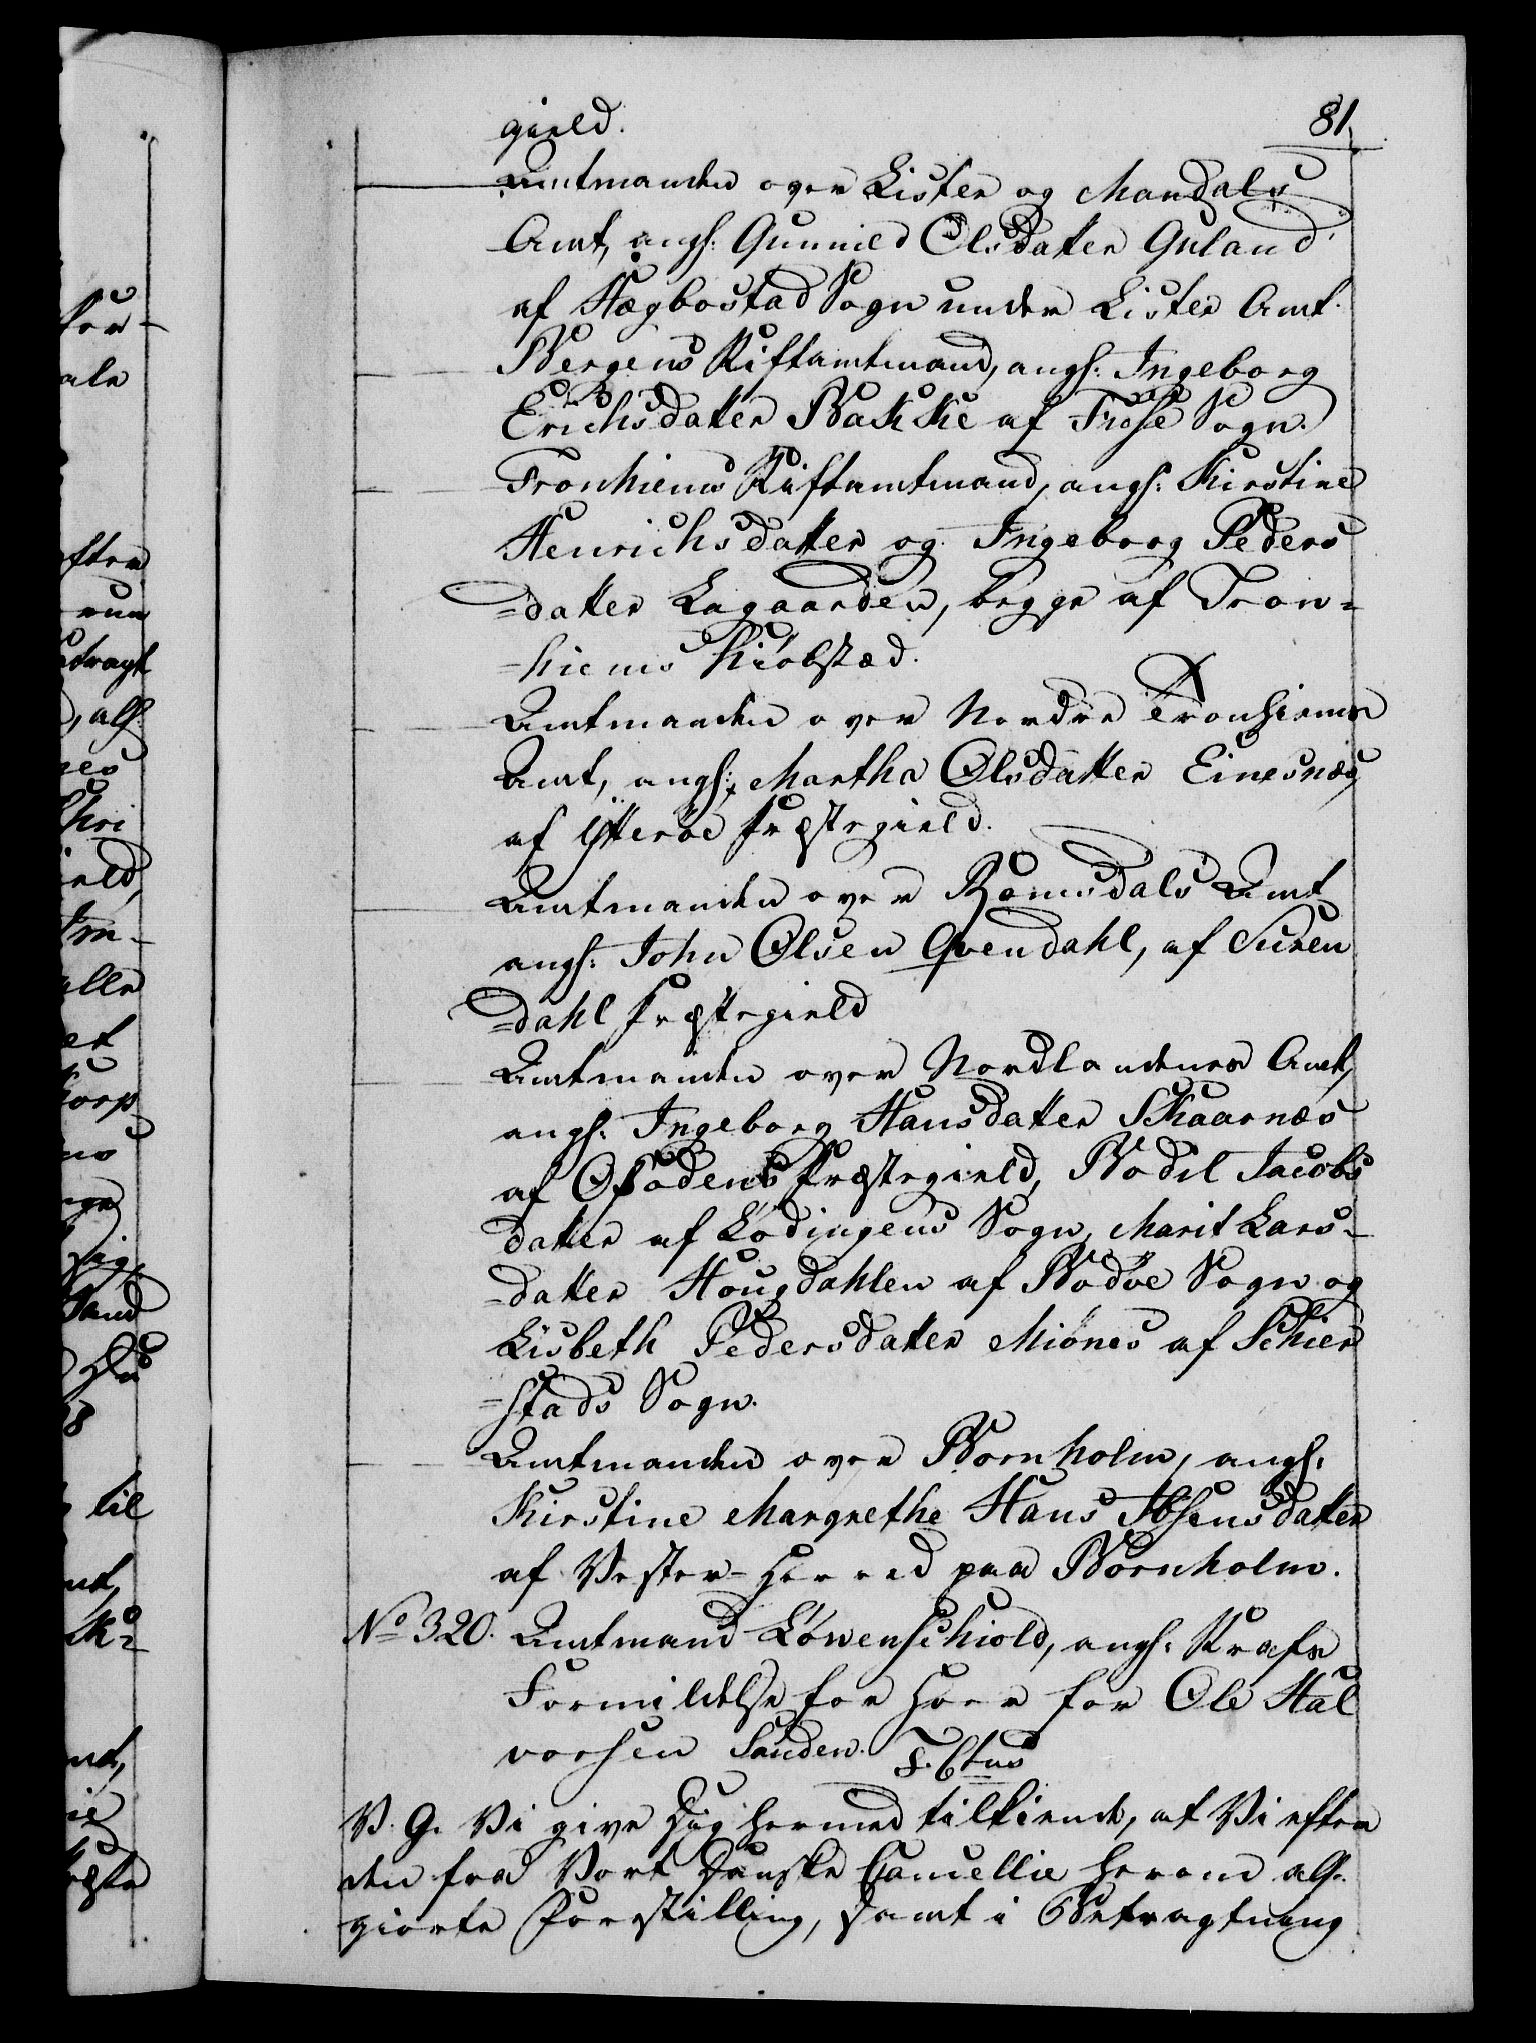 81
gield.
Amtmanden over Lister og Mandals
Amt, angs: Gunnild Olsdatter Guland
af Hægbostad Sogn under Lister Amt.
Bergens Stiftamtmand, angs: Ingeborg
Erichsdatter Bakke af Sogn.
Tronhiems Stiftamtmand, angs: Kirstine
Henrichsdatter og Ingeborg Peders
=datter Lagaarden, begge af Tron=
=hiems Kiøbstæd.
Amtmanden over Nordre Tronhiems
Amt, angs: Martha Olsdatter Einesnæs
af Ytterøe Præstegield.
Amtmanden over Romsdals Amt
angs: John Olsen Qvendahl, af Suren
=dahl Præstegield
Amtmanden over Nordlandenes Amt,
angs: Ingeborg Hansdatter Skaarnæs
af Ofodens Præstegield, Bodil Jacobs
datter af Lødingens Sogn, Marit Lars-
=datter Hougdahlen af Bodøe Sogn og
Lisbeth Pedersdatter Miønes af Schier
=stads Sogn.
Amtmanden over Bornholm, angs:
Kirstine Margrethe Hans Ibsensdatter
af Vester-Herred paa Bornholm.
No 320. Amtmand Løvenschiold, angs: Straffe
Formildelse for Hoer for Ole Hal
vorsen Sanden. T. Ctus
V. G. Vi give Dig hermed tilkiende, at Vi efter
den fra Vort Danske Cancellie herom alh:
giorte Forestilling, samt i Betragtning